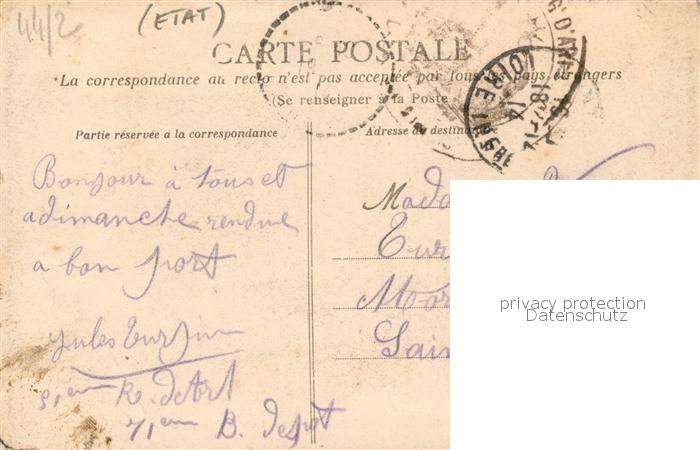 44/2
(ETAT)
CARTE POSTALE
La correspondance au recto n'est pas acceptée par tous les pays étrangers
(Se renseigner à la Poste
Partie réservée à la correspondance
Adresse du destinataire
LOIRE INFRE
14
Bonjour à tous et
a dimanche rendue
a bon port
Jules
51eme R. d'Art
71eme B. depot
Mada
Tur
Mor
Sain
privacy protection
Datenschutz